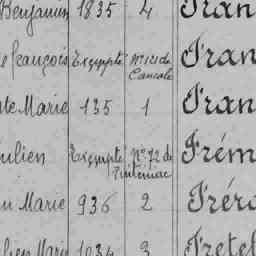 Benjamin 1835 4 Fran
François Exempté N° 121 de Cancale Fran
Marie 135 1 Fran
ulien Exempté N° 72 de Tinténiac Frém
Marie 936 2 Frér
lien Marie 1034 3 Fretel